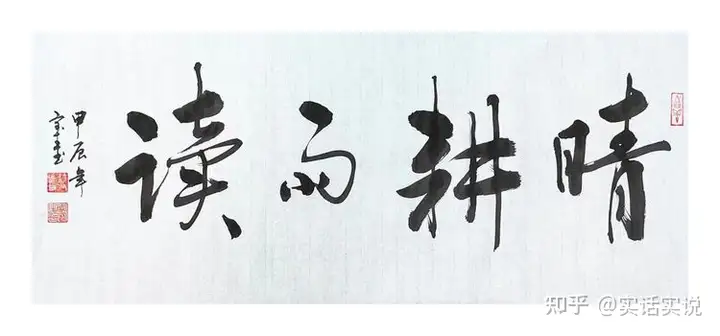 晴耕雨读
甲辰年
知乎 @实话实说